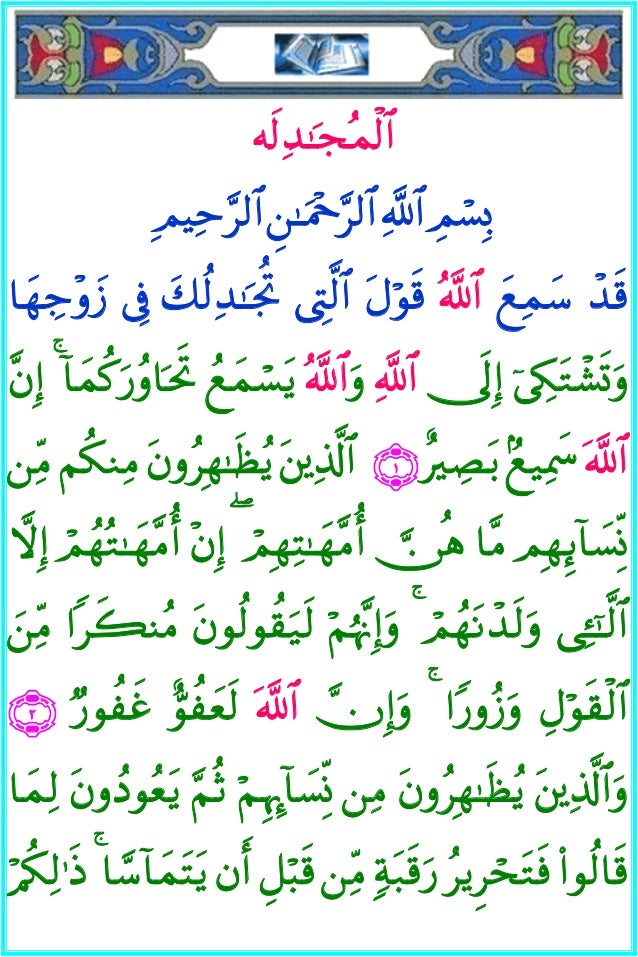 ٱلْمُجَـٰدِلَه
بِسْمِ ٱللَّهِ ٱلرَّحْمَـٰنِ ٱلرَّحِيمِ
قَدْ سَمِعَ ٱللَّهُ قَوْلَ ٱلَّتِى تُجَـٰدِلُكَ فِى زَوْجِهَا
وَتَشْتَكِىٓ إِلَى ٱللَّهِ وَٱللَّهُ يَسْمَعُ تَحَاوُرَكُمَآ ۚ إِنَّ
ٱللَّهَ سَمِيعٌۢ بَصِيرٌ ١ ٱلَّذِينَ يُظَـٰهِرُونَ مِنكُم مِّن
نِّسَآئِهِم مَّا هُنَّ أُمَّهَـٰتِهِمْ ۖ إِنْ أُمَّهَـٰتُهُمْ إِلَّا
ٱلَّـٰٓـِٔى وَلَدْنَهُمْ ۚ وَإِنَّهُمْ لَيَقُولُونَ مُنكَرًا مِّنَ
ٱلْقَوْلِ وَزُورًا ۚ وَإِنَّ ٱللَّهَ لَعَفُوٌّ غَفُورٌ ٢
وَٱلَّذِينَ يُظَـٰهِرُونَ مِن نِّسَآئِهِمْ ثُمَّ يَعُودُونَ لِمَا
قَالُوا۟ فَتَحْرِيرُ رَقَبَةٍ مِّن قَبْلِ أَن يَتَمَآسَّا ۚ ذَٰلِكُمْ